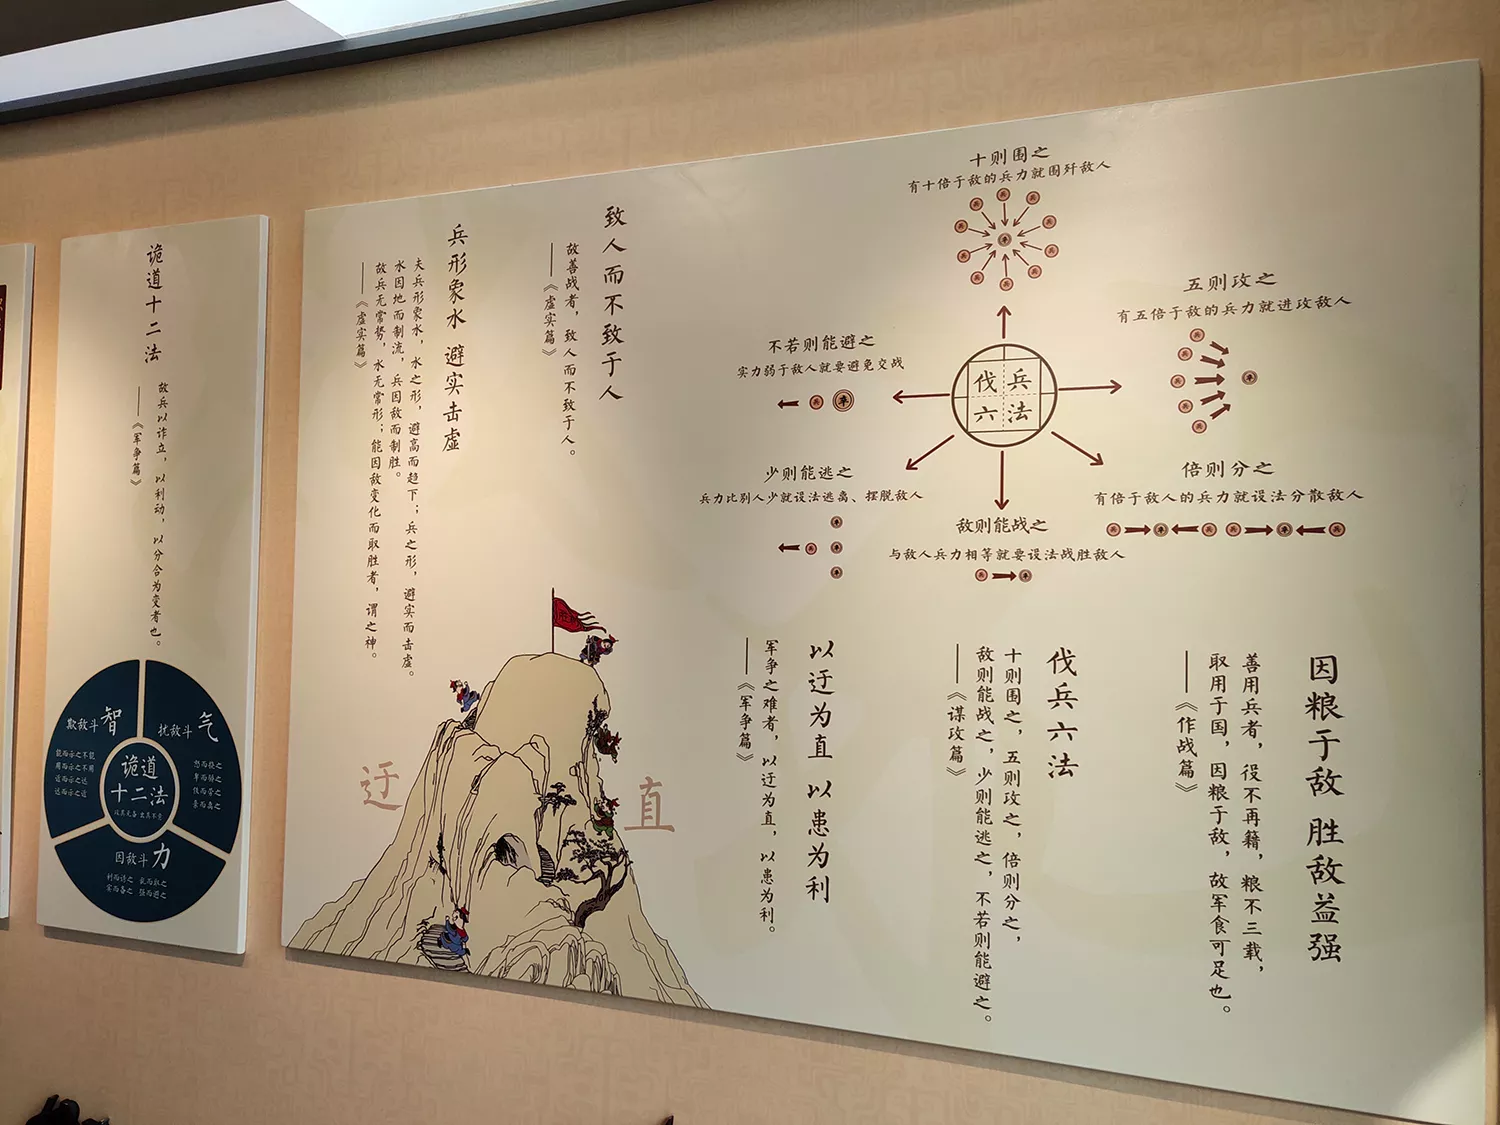 因粮于敌 胜敌益强
善用兵者，役不再籍，粮不三载，
取用于国，因粮于敌，故军食可足也。
——《作战篇》
伐兵六法
十则围之，五则攻之，倍则分之，
敌则能战之，少则能逃之，不若则能避之。
——《谋攻篇》
以迂为直 以患为利
军争之难者，以迂为直，以患为利。
——《军争篇》
十则围之
有十倍于敌的兵力就围歼敌人
五则攻之
有五倍于敌的兵力就进攻敌人
倍则分之
有倍于敌人的兵力就设法分散敌人
敌则能战之
与敌人兵力相等就要设法战胜敌人
少则能逃之
兵力比别人少就设法逃离、摆脱敌人
不若则能避之
实力弱于敌人就要避免交战
伐兵
六法
致人而不致于人
故善战者，致人而不致于人。
——《虚实篇》
兵形象水 避实击虚
夫兵形象水，水之形，避高而趋下；兵之形，避实而击虚。
水因地而制流，兵因敌而制胜。
故兵无常势，水无常形；能因敌变化而取胜者，谓之神。
——《虚实篇》
迂
直
诡道十二法
故兵以诈立，以利动，以分合为变者也。
——《军争篇》
欺敌斗智
能而示之不能
用而示之不用
近而示之远
远而示之近
扰敌斗气
怒而挠之
卑而骄之
佚而劳之
亲而离之
诡道
十二法
攻其无备 出其不意
因敌斗力
利而诱之 乱而取之
实而备之 强而避之